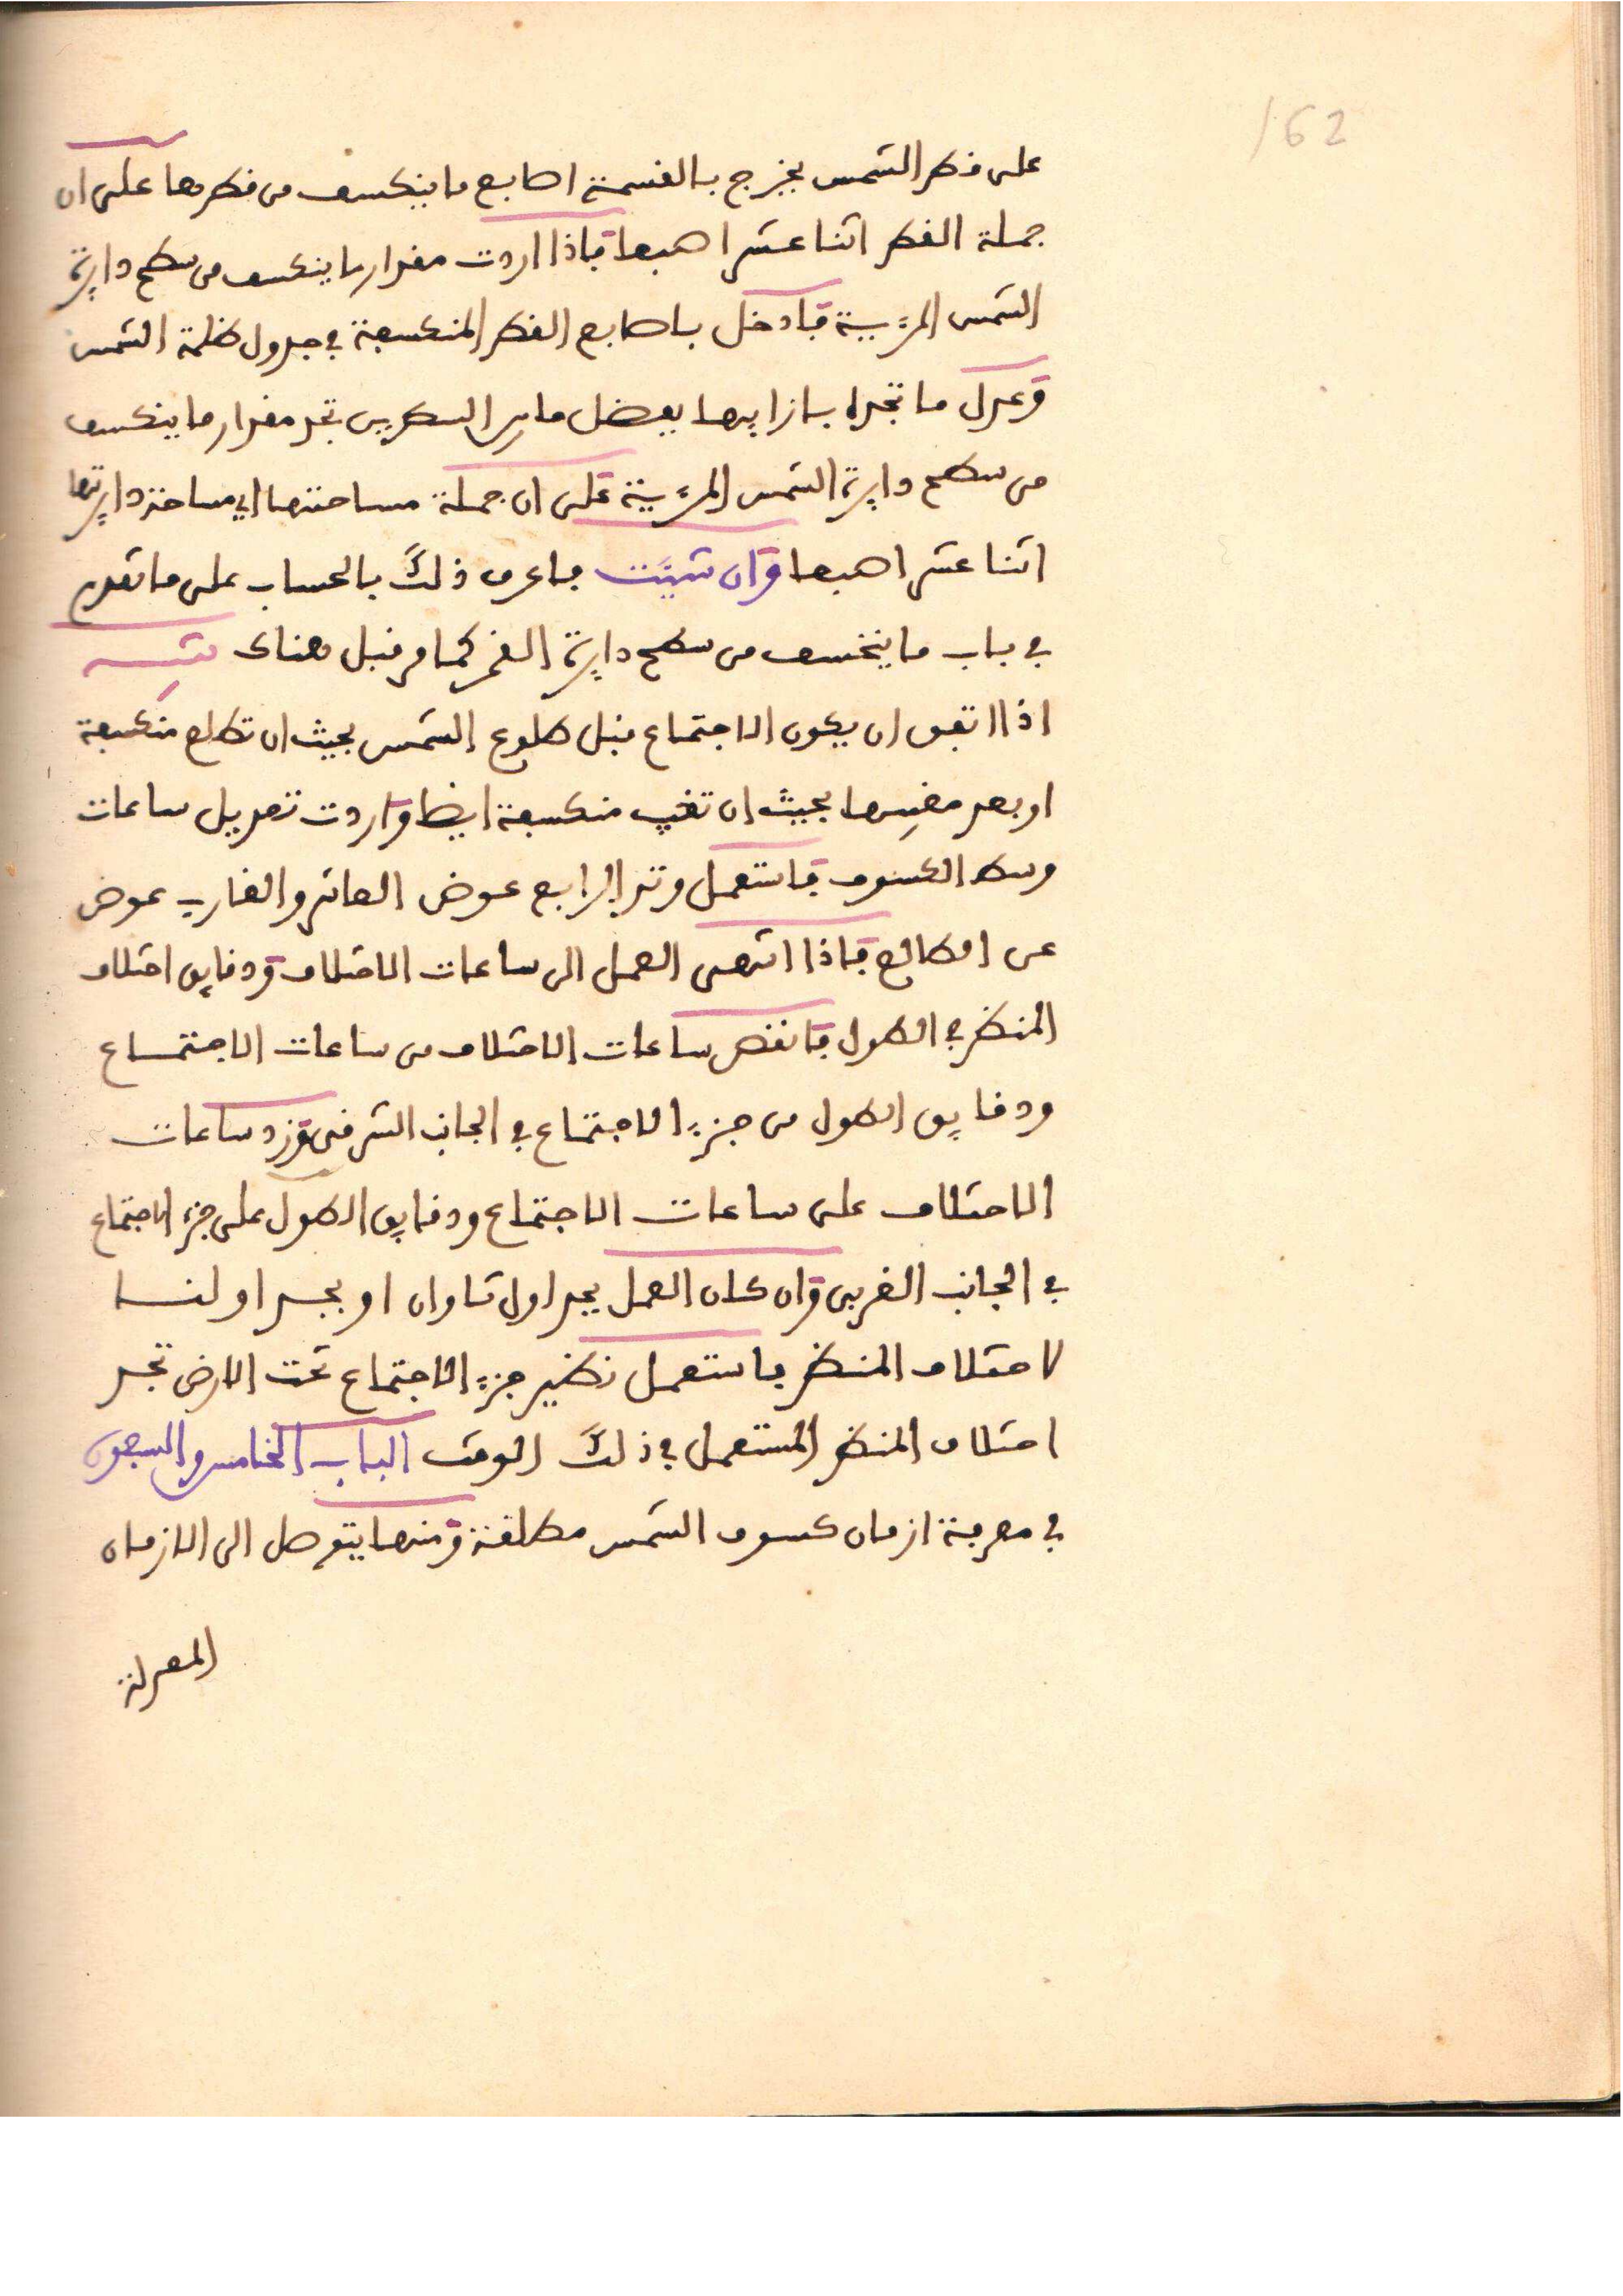 162
على قطر الشمس يخرج بالقسمة اصابع ما ينكسف من قطرها على ان
جملة القطر اثنا عشر اصبعا فاذا اردت مقدار ما ينكسف من سطح دايرة
الشمس المرءية فادخل باصابع القطر المنكسفة في جدول ظلمة الشمس
وعدل ما تجده بازايها بفضل ما بين السطرين تجد مقدار ما ينكسف
من سطح دايرة الشمس المرءية على ان جملة مساحتها اي مساحة دايرتها
اثنا عشر اصبعا وان شيت فاعرف ذلك بالحساب على ما تقدم
في باب ما ينخسف من سطح دايرة القمر كما مر قبل هناك تنبيه
اذا اتفق ان يكون الاجتماع قبل طلوع الشمس بحيث ان تطلع منكسفة
او بعد مغيبها بحيث ان تغيب منكسفة ايضا واردت تعديل ساعات
وسط الكسوف فاستعمل وتد الرابع عوض العاشر والغارب عوض
عن الطالع فاذا انتهى العمل الى ساعات الاختلاف ودقايق اختلاف
المنظر في الطول فانقص ساعات الاختلاف من ساعات الاجتماع
ودقايق الطول من جزء الاجتماع في الجانب الشرقي وزد ساعات
الاختلاف على ساعات الاجتماع ودقايق الطول على جزء الاجتماع
في الجانب الغربي وان كان العمل بجداول تاوان او بجداولنا
لاختلاف المنظر فاستعمل نظير جزء الاجتماع تحت الارض تجد
اختلاف المنظر المستعمل في ذلك الوقت الباب الخامس والسبعون
في معرفة ازمان كسوف الشمس مطلقة ومنها يتوصل الى الازمان
المعدلة